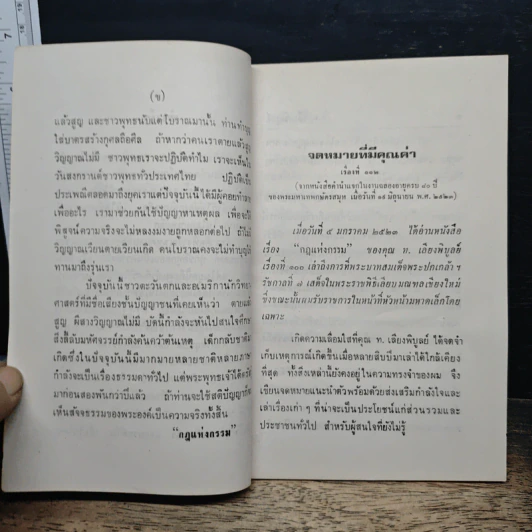 (ข)
แล้วสูญ และชาวพุทธนับแต่โบราณมานั้น ท่านทำบุญ
ใส่บาตรสร้างกุศลถือศีล ถ้าหากว่าคนเราตายแล้วสูญ
วิญญาณไม่มี ชาวพุทธเราจะปฏิบัติทำไม เราจะเห็น
วันสงกรานต์ชาวพุทธทั่วประเทศไทย ปฏิบัติเป็น
ประเพณีตลอดมาถึงยุคเราแต่ปัจจุบันนี้ ได้มีผู้คอยทำ
เพื่ออะไร เรามาช่วยกันใช้ปัญญาหาเหตุผล เพื่อจะได้
พิสูจน์ความจริงจะไม่หลงงมงายถูกหลอกต่อไป ถ้าไม่มี
วิญญาณเวียนตายเวียนเกิด คนโบราณคงจะไม่ทำบุญให้
ทานมาถึงรุ่นเรา
ปัจจุบันนี้ชาวตะวันตกและอเมริกานักวิทยา-
ศาสตร์ที่มีชื่อเสียงชั้นปัญญาชนที่เคยเห็นว่า ตายแล้ว
สูญ ผีสางวิญญาณไม่มี บัดนี้กำลังจะหันไปสนใจศึกษา
สิ่งลี้ลับมหัศจรรย์กำลังค้นคว้าต้นเหตุ เด็กกลับชาติมา
เกิดซึ่งในปัจจุบันนี้มีมากมายหลายชาติหลายภาษา
กำลังจะเป็นเรื่องธรรมดาทั่วไป แต่พระพุทธเจ้าได้ตรัส
มาก่อนสองพันกว่าปีแล้ว ถ้าท่านจะใช้สติปัญญาก็จะ
เห็นสัจจธรรมของพระองค์เป็นความจริงทั้งสิ้น
“กฎแห่งกรรม”
จดหมายที่มีคุณค่า
เรื่องที่ ๑๐๒
(จากหนังสือทำนำแจกในงานฉลองอายุครบ ๘๐ ปี
ของพระมหาเทพกษัตรสมุห เมื่อวันที่ ๑๔ มิถุนายน พ.ศ. ๒๕๒๓)
เมื่อวันที่ ๔ มกราคม ๒๕๒๓ ได้อ่านหนังสือ
เรื่อง “กฎแห่งกรรม” ของคุณ ท. เลียงพิบูลย์
เรื่องที่ ๑๐๐ เล่าถึงการที่พระบาทสมเด็จพระปกเกล้า ฯ
รัชกาลที่ ๗ เสด็จในพระราชพิธีเลียบมณฑลเชียงใหม่
ซึ่งขณะนั้นผมรับราชการในหน้าที่หัวหน้ามหาดเล็กโดย
เฉพาะ
เกิดความเลื่อมใสที่คุณ ท. เลียงพิบูลย์ ได้จดจำ
เก็บเหตุการณ์เกิดขึ้นเมื่อหลายสิบปีมาเล่าได้ใกล้เคียง
ที่สุด ทั้งสิ่งเหล่านี้ยังคงอยู่ในความทรงจำของผม จึง
เขียนจดหมายแนะนำตัวพร้อมด้วยส่งเสริมกำลังใจและ
เล่าเรื่องเก่า ๆ ที่น่าจะเป็นประโยชน์แก่ส่วนรวมและ
ประชาชนทั่วไป สำหรับผู้สนใจที่ยังไม่รู้